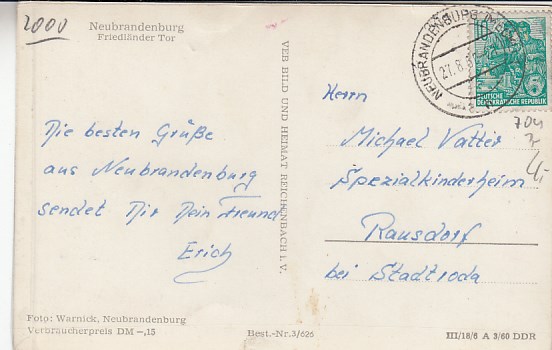 2000
Neubrandenburg
Friedländer Tor
Die besten Grüße
aus Neubrandenburg
sendet Dir Dein Freund
Erich
Foto: Warnick, Neubrandenburg
Verbraucherpreis DM –,15
VEB BILD UND HEIMAT REICHENBACH i. V.
Best.-Nr. 3/626
NEUBRANDENBURG
27.8.6
10
DEUTSCHE
DEMOKRATISCHE REPUBLIK
704
Herrn
Michael Vatter
Spezialkinderheim
Rausdorf
bei Stadtroda
III/18/6 A 3/60 DDR